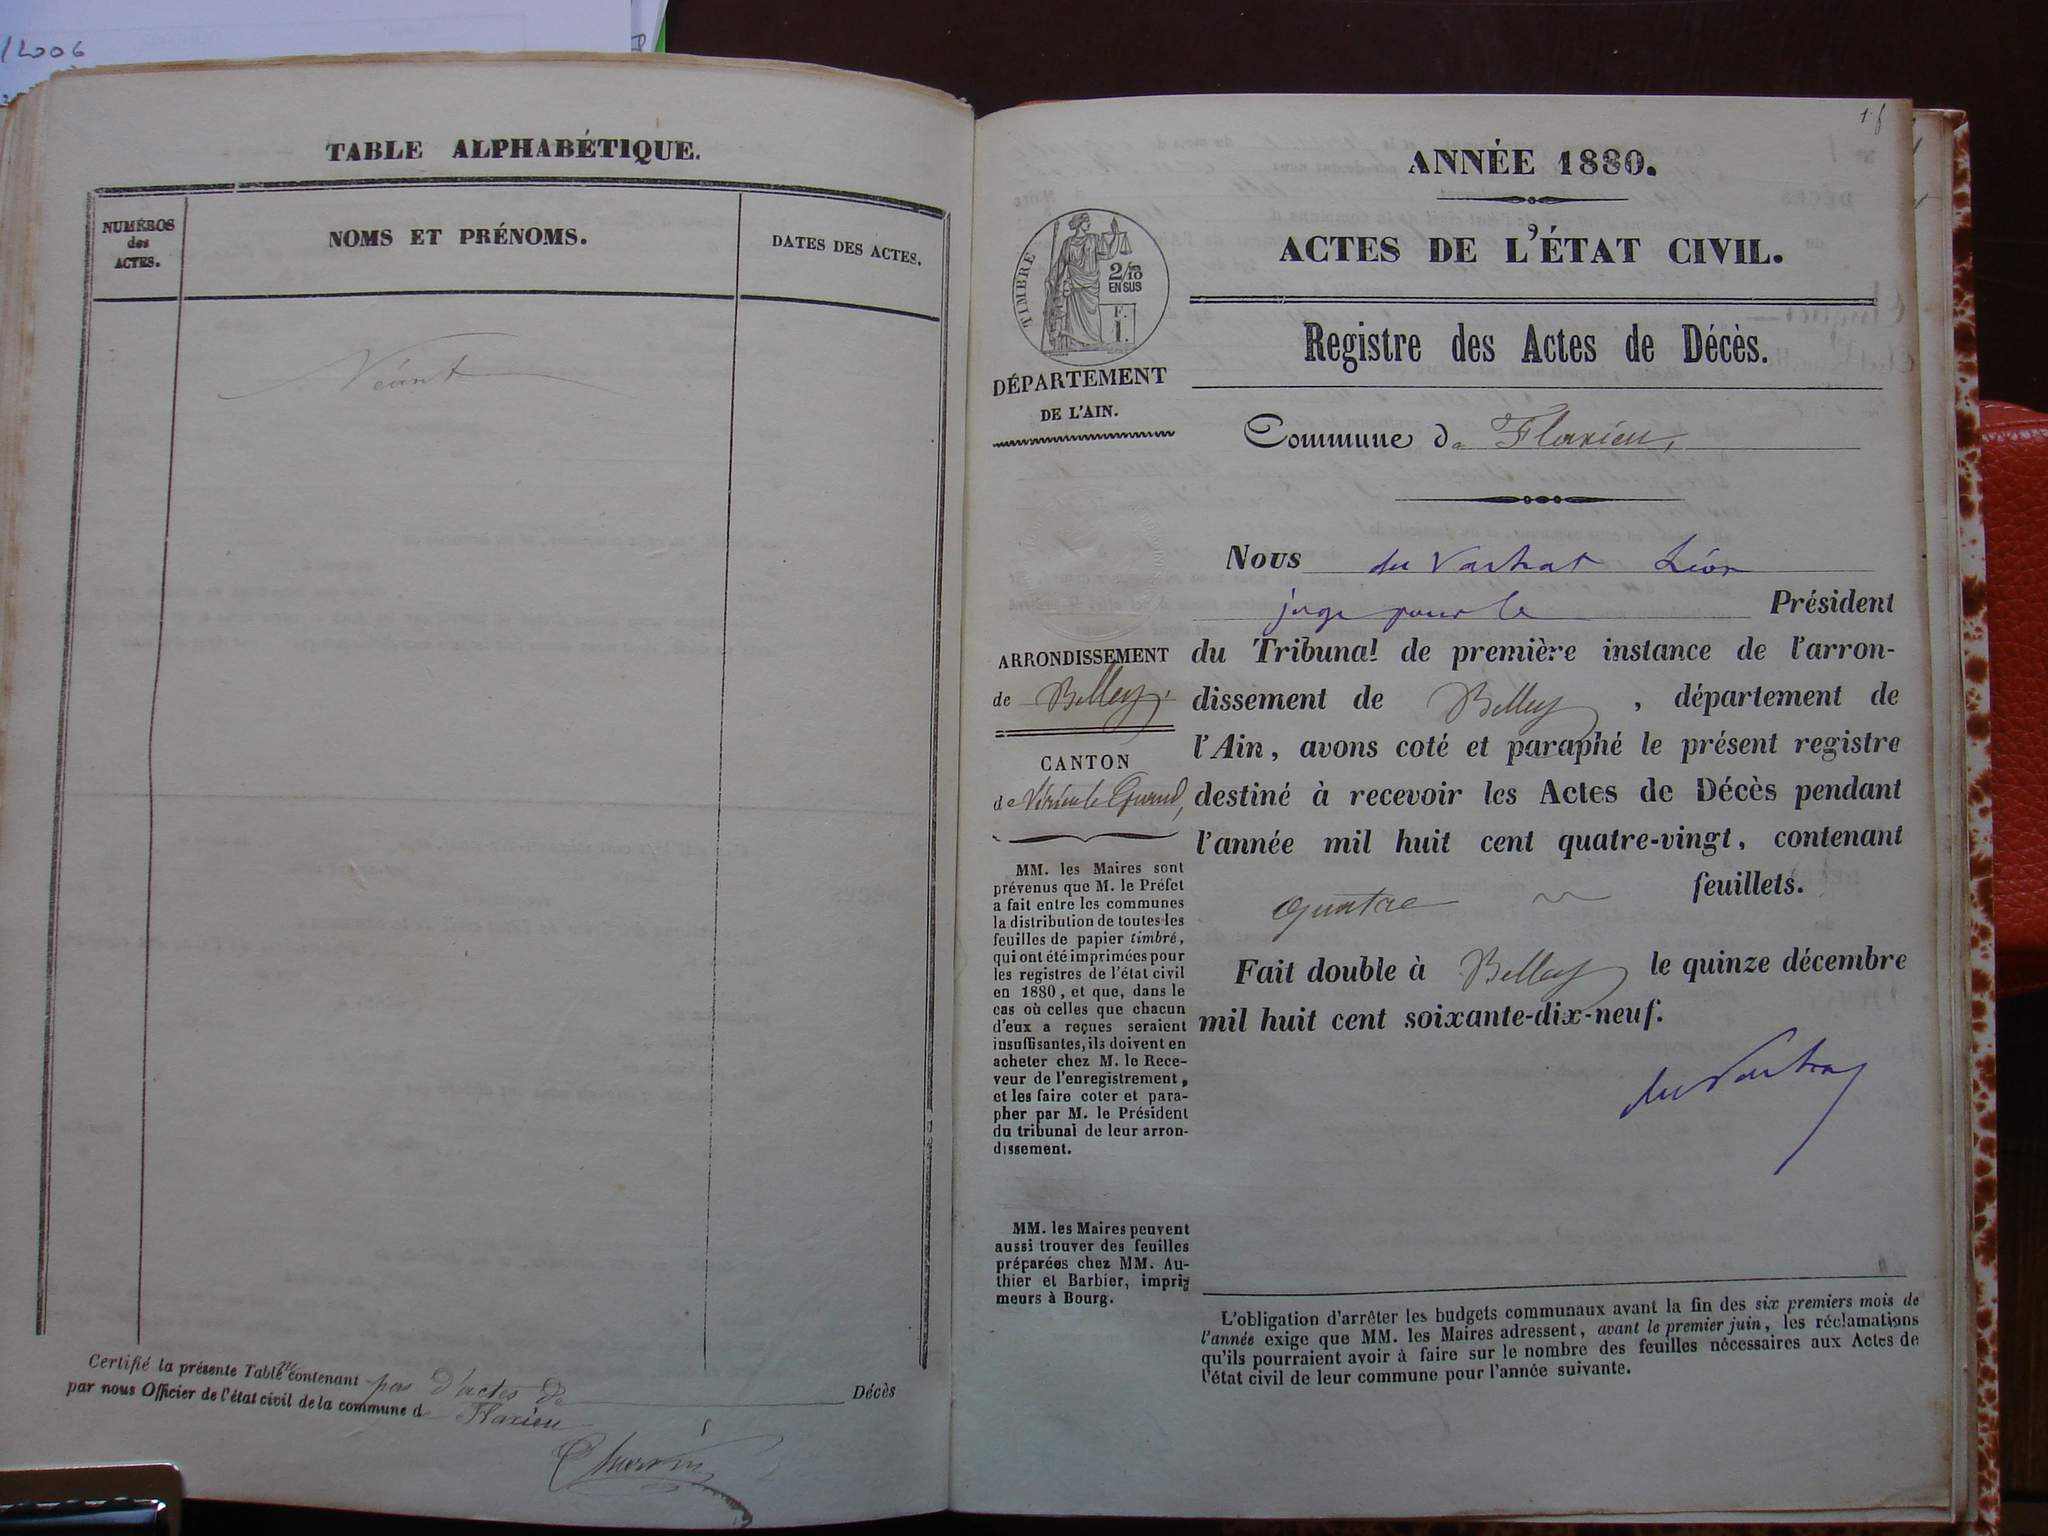 /2006
TABLE ALPHABÉTIQUE.
NUMÉROS
des
ACTES.
NOMS ET PRÉNOMS.
DATES DES ACTES.
Néant
Certifié la présente Table contenant pas d'actes de Décès
par nous Officier de l'état civil de la commune de Flaxieu
1. f
ANNÉE 1880.
ACTES DE L'ÉTAT CIVIL.
TIMBRE
2/10
EN SUS
F.
1.
Registre des Actes de Décès.
DÉPARTEMENT
DE L'AIN.
Commune de Flaxieu,
Nous du Vachat Léon
juge pour le Président
du Tribunal de première instance de l'arron-
dissement de Belley, département de
l'Ain, avons coté et paraphé le présent registre
destiné à recevoir les Actes de Décès pendant
l'année mil huit cent quatre-vingt, contenant
quatre feuillets.
Fait double à Belley le quinze décembre
mil huit cent soixante-dix-neuf.
du Vachat
ARRONDISSEMENT
de Belley,
CANTON
de Virieu le Grand,
MM. les Maires sont
prévenus que M. le Préfet
a fait entre les communes
la distribution de toutes les
feuilles de papier timbré,
qui ont été imprimées pour
les registres de l'état civil
en 1880, et que, dans le
cas où celles que chacun
d'eux a reçues seraient
insuffisantes, ils doivent en
acheter chez M. le Rece-
veur de l'enregistrement,
et les faire coter et para-
pher par M. le Président
du tribunal de leur arron-
dissement.
MM. les Maires peuvent
aussi trouver des feuilles
préparées chez MM. Au-
thier et Barbier, impri-
meurs à Bourg.
L'obligation d'arrêter les budgets communaux avant la fin des six premiers mois de
l'année exige que MM. les Maires adressent, avant le premier juin, les réclamations
qu'ils pourraient avoir à faire sur le nombre des feuilles nécessaires aux Actes de
l'état civil de leur commune pour l'année suivante.